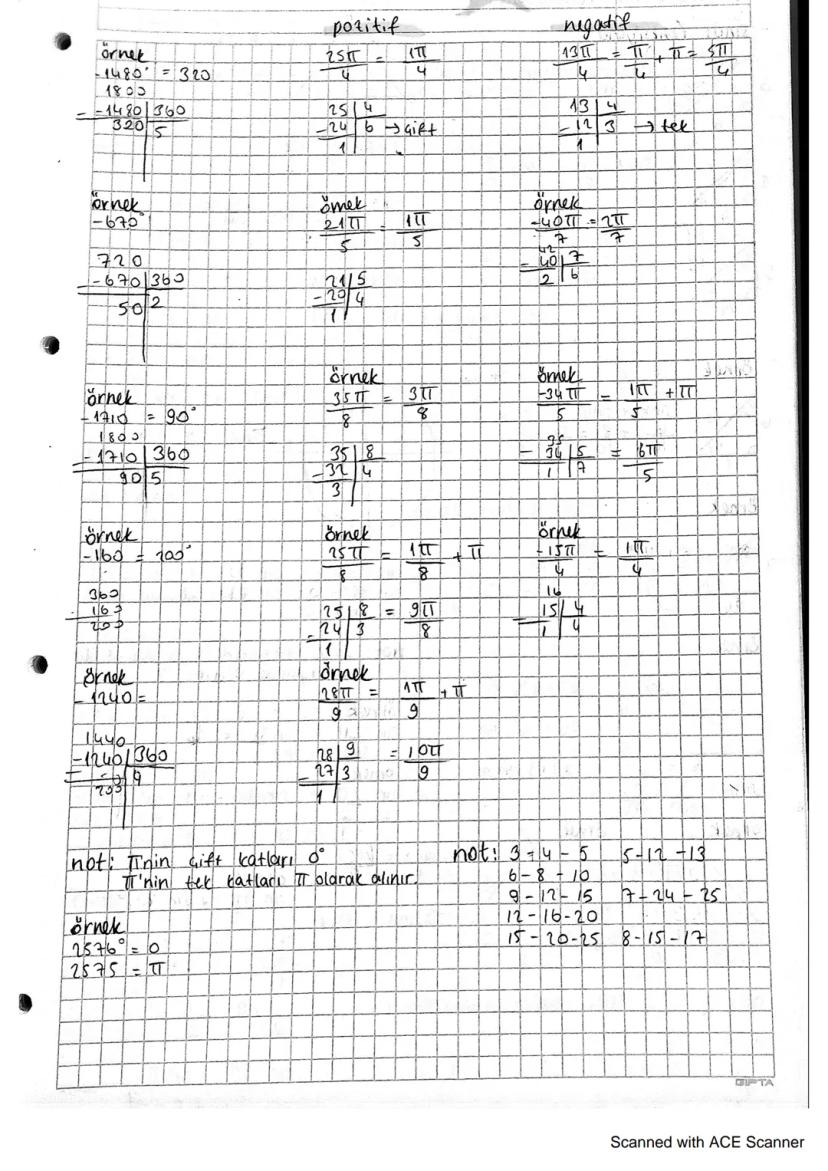 pozitif
negatif
örnek
-1480° = 320
1800
-1480 | 360
320 | 5
25π/4 = 1π/4
25 | 4
-24 | 6 → çift
1
13π/4 = π/4 + π = 5π/4
13 | 4
-12 | 3 → tek
1
örnek
-670°
720
-670 | 360
50 | 2
örnek
21π/5 = 1π/5
21 | 5
-20 | 4
1
örnek
-40π/7 = 2π/7
42
-40 | 7
2 | 6
örnek
-1710 = 90°
1800
-1710 | 360
90 | 5
örnek
35π/8 = 3π/8
35 | 8
-32 | 4
3
örnek
-34π/5 = 1π/5 + π
35
-34 | 5 = 6π/5
1 | 7
örnek
-160 = 200°
360
-160
200
örnek
25π/8 = 1π/8 + π
25 | 8 = 9π/8
-24 | 3
1
örnek
-15π/4 = 1π/4
16
-15 | 4
1 | 4
örnek
-1240 =
1440
-1240 | 360
200 | 4
örnek
28π/9 = 1π/9 + π
28 | 9 = 10π/9
-27 | 3
1
not: π'nin çift katları 0°
π'nin tek katları π olarak alınır.
örnek
2576° = 0
2575 = π
not: 3-4-5 5-12-13
6-8-10
9-12-15 7-24-25
12-16-20
15-20-25 8-15-17
GIPTA
Scanned with ACE Scanner